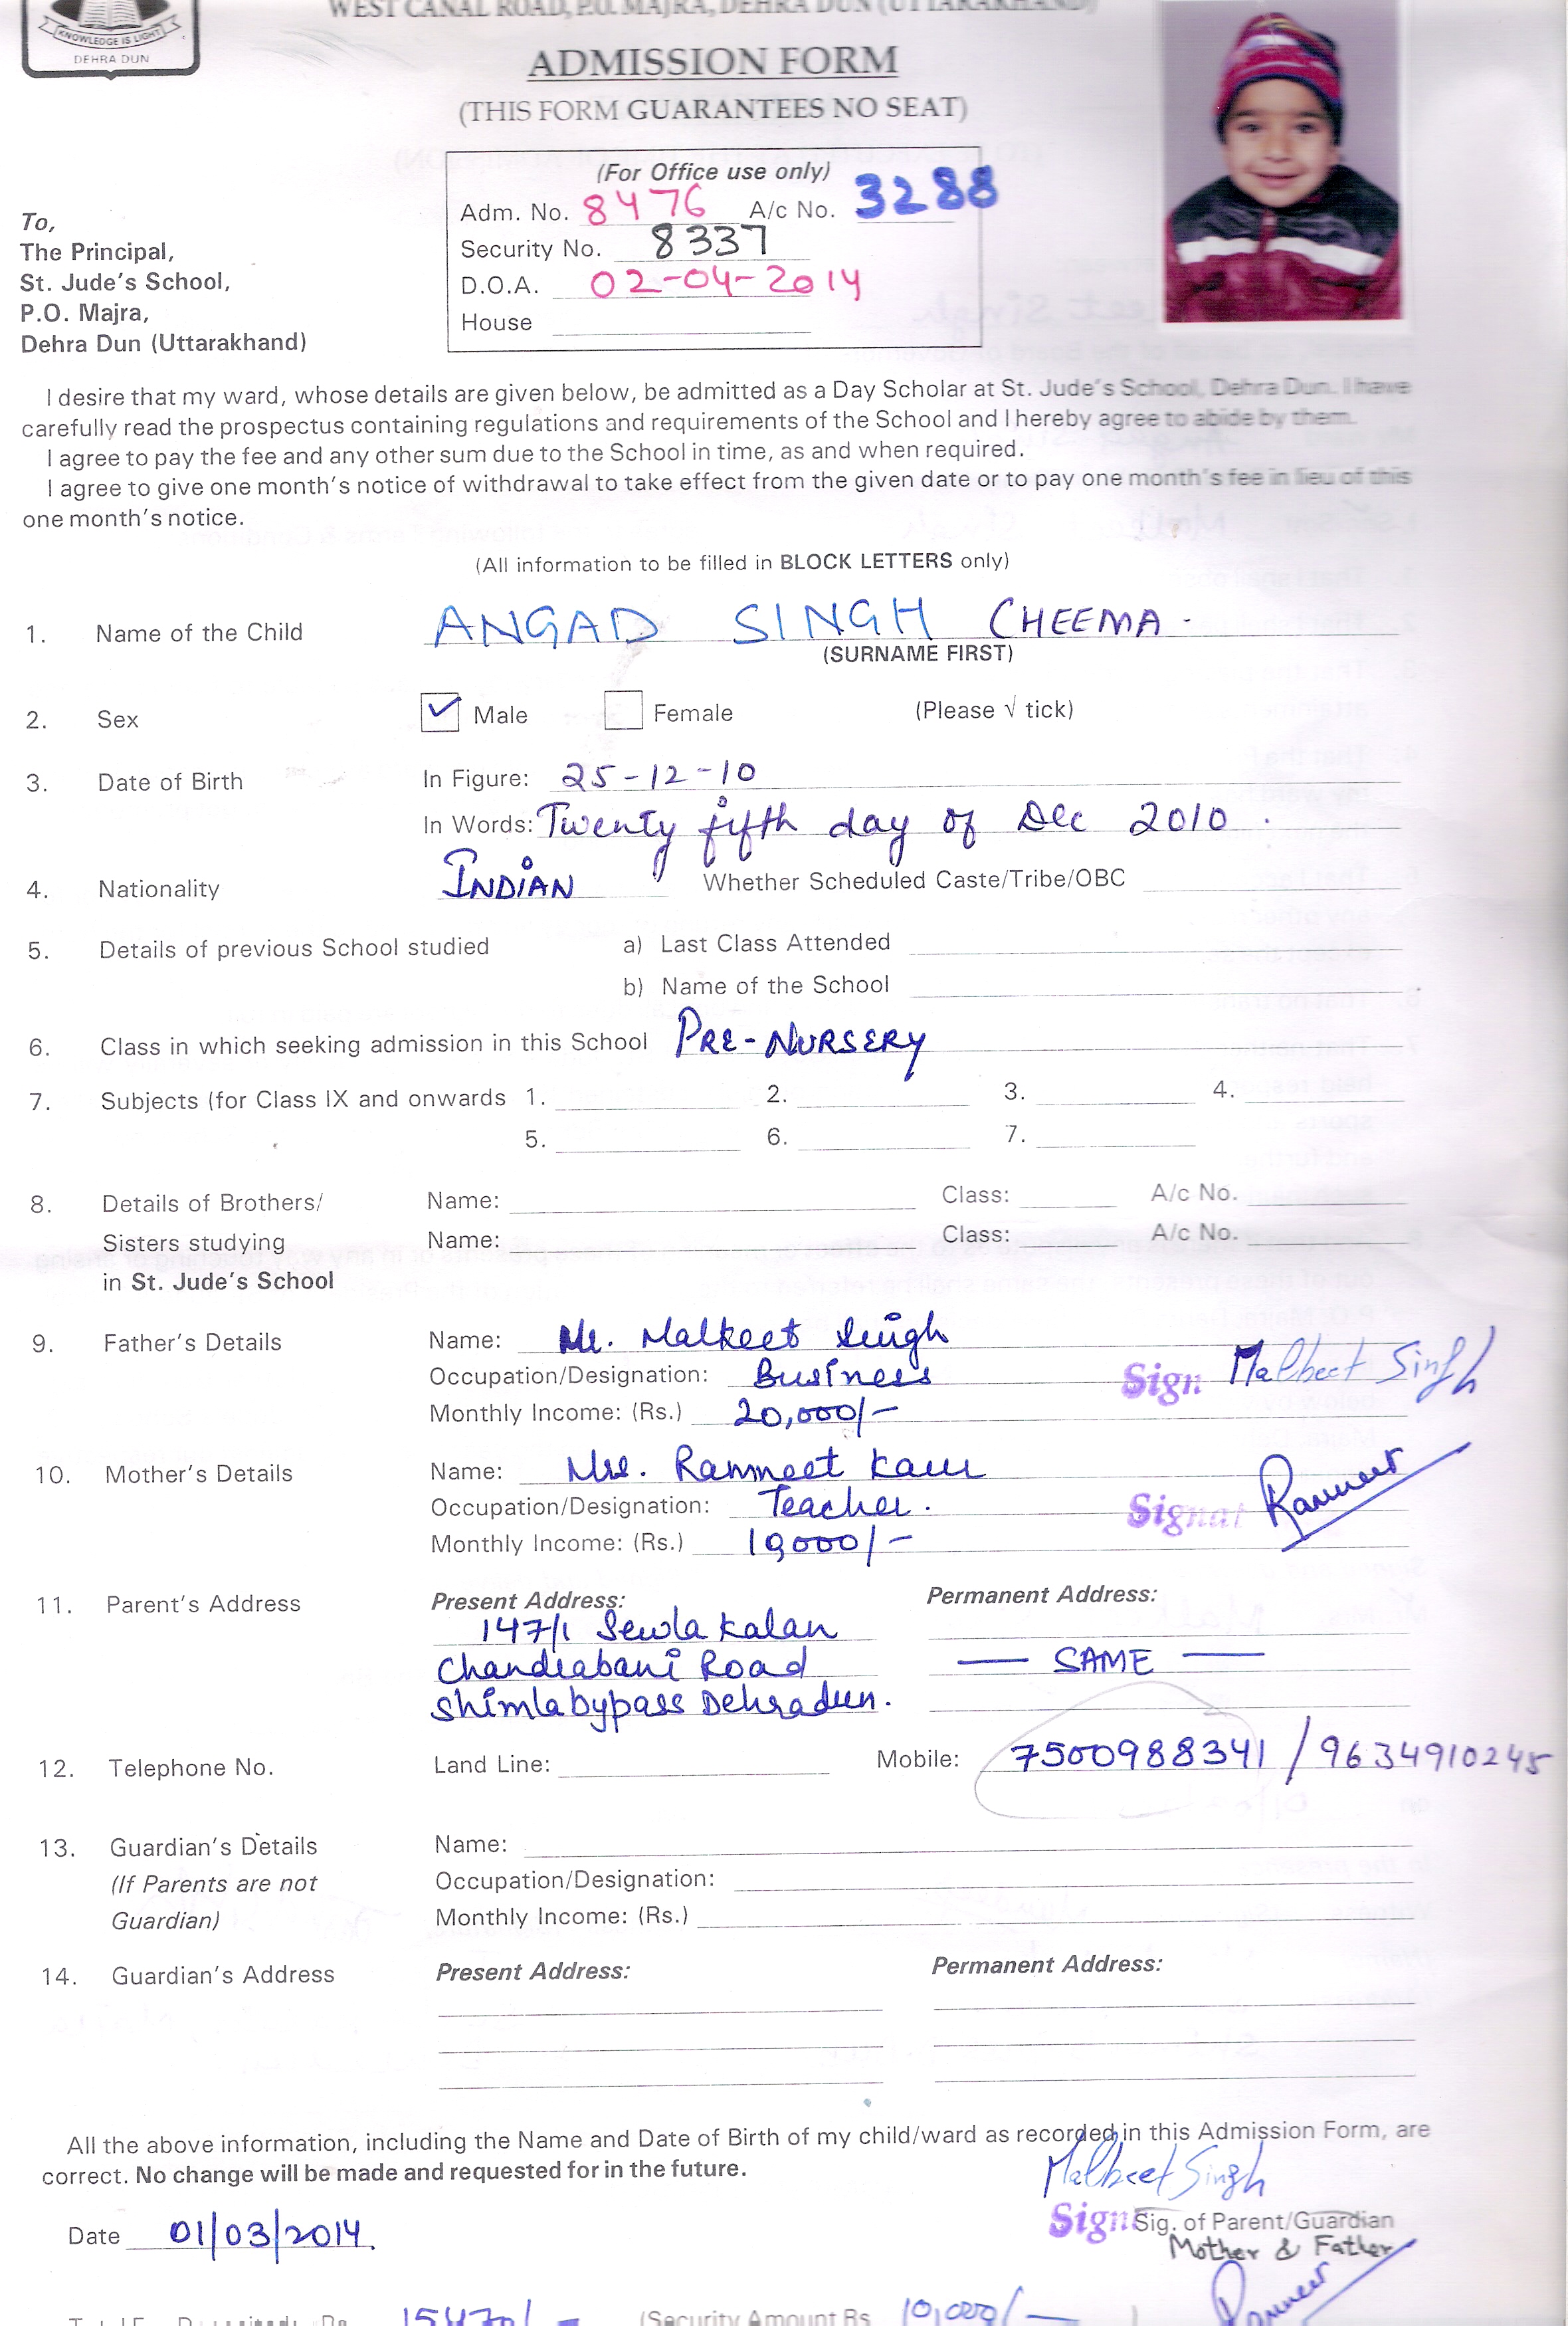 WEST CANAL ROAD, P.O. MAJRA, DEHRA DUN (UTTARAKHAND)
KNOWLEDGE IS LIGHT
DEHRA DUN
ADMISSION FORM
(THIS FORM GUARANTEES NO SEAT)
(For Office use only)
Adm. No. 8476 A/c No. 3288
Security No. 8337
D.O.A. 02-04-2014
House
To,
The Principal,
St. Jude's School,
P.O. Majra,
Dehra Dun (Uttarakhand)
I desire that my ward, whose details are given below, be admitted as a Day Scholar at St. Jude's School, Dehra Dun. I have
carefully read the prospectus containing regulations and requirements of the School and I hereby agree to abide by them.
I agree to pay the fee and any other sum due to the School in time, as and when required.
I agree to give one month's notice of withdrawal to take effect from the given date or to pay one month's fee in lieu of this
one month's notice.
(All information to be filled in BLOCK LETTERS only)
1. Name of the Child ANGAD SINGH CHEEMA.
(SURNAME FIRST)
2. Sex Male Female (Please √ tick)
3. Date of Birth In Figure: 25-12-10
In Words: Twenty fifth day of Dec 2010.
4. Nationality INDIAN Whether Scheduled Caste/Tribe/OBC
5. Details of previous School studied a) Last Class Attended
b) Name of the School
6. Class in which seeking admission in this School PRE-NURSERY
7. Subjects (for Class IX and onwards 1. 2. 3. 4.
5. 6. 7.
8. Details of Brothers/ Name: Class: A/c No.
Sisters studying Name: Class: A/c No.
in St. Jude's School
9. Father's Details Name: Mr. Malkeet Singh
Occupation/Designation: Business Sign Malkeet Singh
Monthly Income: (Rs.) 20,000/-
10. Mother's Details Name: Mrs. Ranmeet Kaur
Occupation/Designation: Teacher. Signat Ranmeet
Monthly Income: (Rs.) 10,000/-
11. Parent's Address Present Address: Permanent Address:
147/1 Sewla Kalan
Chandrabani Road — SAME —
Shimla bypass Dehradun.
12. Telephone No. Land Line: Mobile: 7500988341 / 9634910245
13. Guardian's Details Name:
(If Parents are not Occupation/Designation:
Guardian) Monthly Income: (Rs.)
14. Guardian's Address Present Address: Permanent Address:
All the above information, including the Name and Date of Birth of my child/ward as recorded in this Admission Form, are
correct. No change will be made and requested for in the future.
Malkeet Singh
Date 01/03/2014. Sign Sig. of Parent/Guardian
Mother & Father
Ranmeet
15470/- (Security Amount Rs 10,000/-